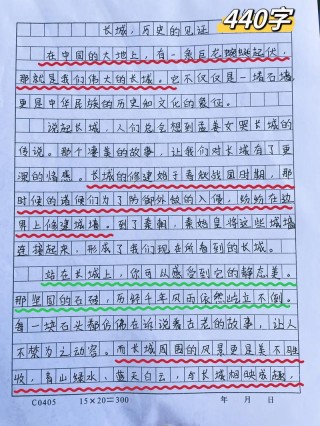 440字
长城,历史的见证
在中国的大地上,有一条巨龙蜿蜒起伏,
那就是我们伟大的长城。它不仅仅是一堵石墙,
更是中华民族的历史和文化的象征。
说起长城,人们总会想到孟姜女哭长城的
传说。那个凄美的故事,让我们对长城有了更
深的情感。长城的修建始于春秋战国时期,那
时候的诸侯们为了防御外敌的入侵,纷纷在边
界上修建城墙。到了秦朝,秦始皇将这些城墙
连接起来,形成了我们现在所看到的长城。
站在长城上,你可以感受到它的静态美。
那坚固的石砖,历经千年风雨依然屹立不倒。
每一块石头都仿佛在诉说着古老的故事,让人
不禁为之动容。而长城周围的风景更是美不胜
收,青山绿水,蓝天白云,与长城相映成趣,
C0405 15×20=300 年 月 日